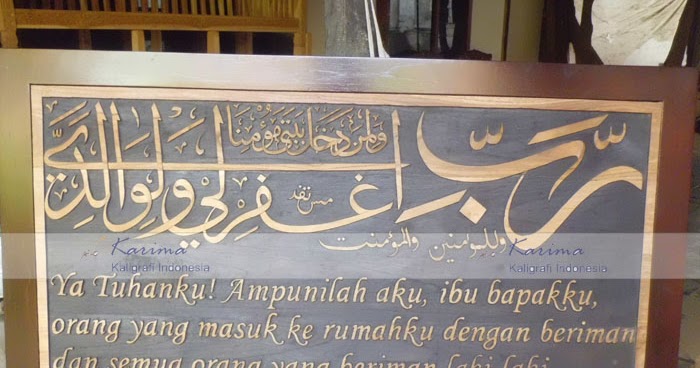 رَبِّ اغفرلي ولوالديَّ
ولمن دخل بيتي مؤمنا
وللمؤمنين والمؤمنت
Karima Karima
Kaligrafi Indonesia Kaligrafi Indonesia
Ya Tuhanku! Ampunilah aku, ibu bapakku,
orang yang masuk ke rumahku dengan beriman
dan semua orang yang beriman laki-laki